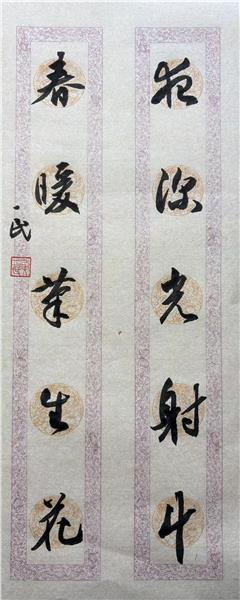 夜深光射斗
春暖筆生花
一民